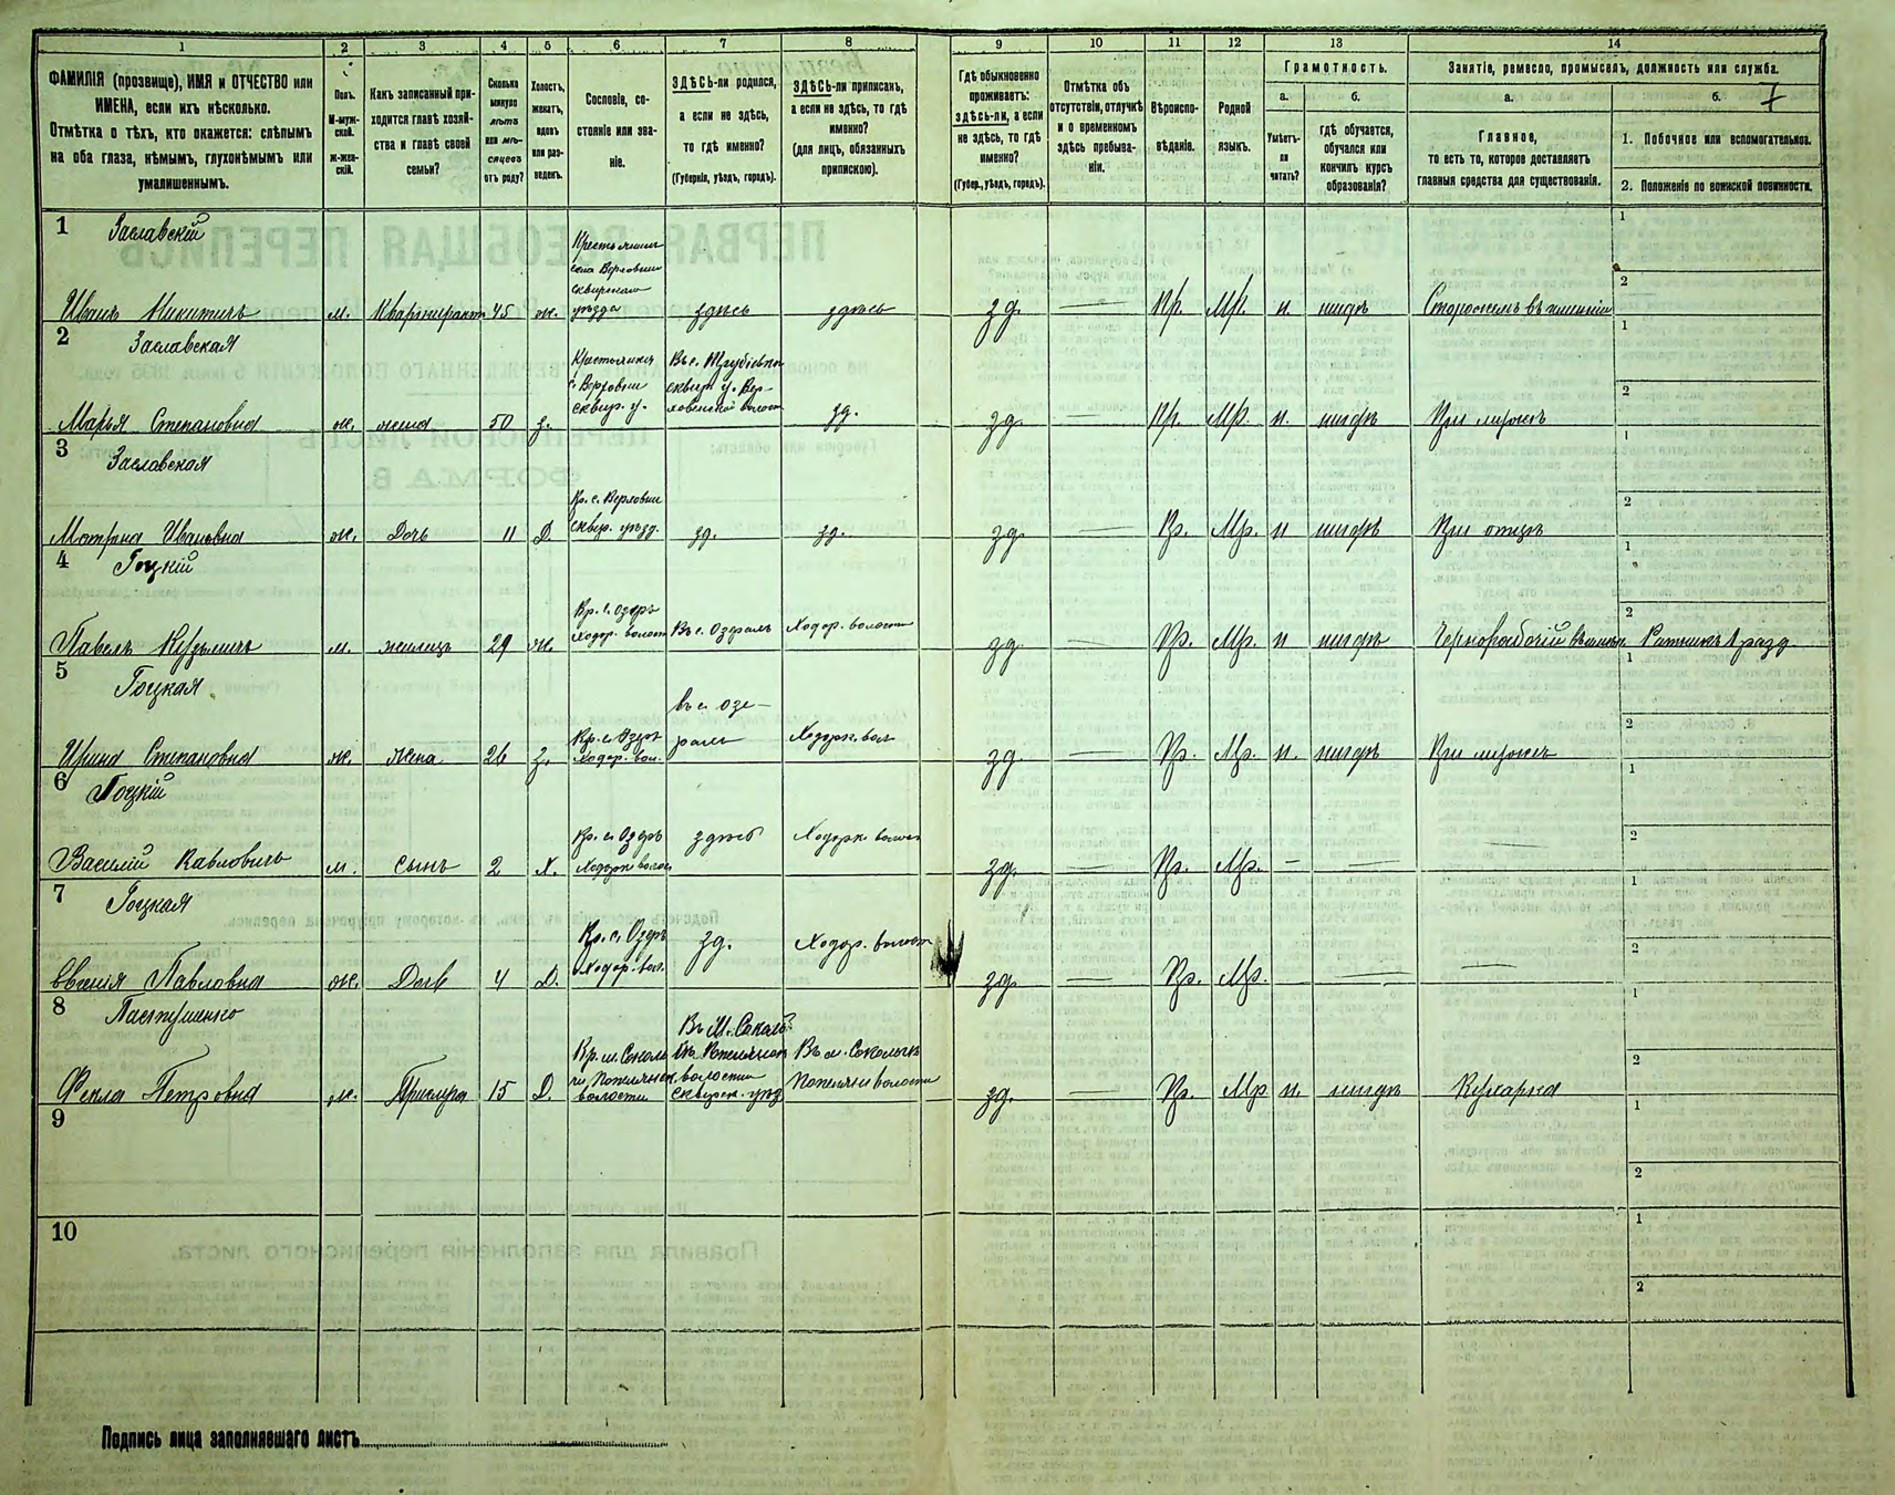 1 2 3 4 5 6 7 8 9 10 11 12 13 14
ФАМИЛІЯ (прозвище), ИМЯ и ОТЧЕСТВО или
ИМЕНА, если ихъ нѣсколько.
Отмѣтка о тѣхъ, кто окажется: слѣпымъ
на оба глаза, нѣмымъ, глухонѣмымъ или
умалишеннымъ.
Полъ.
М-муж-
ской.
Ж-жен-
скій.
Какъ записанный при-
ходится главѣ хозяй-
ства и главѣ своей
семьи?
Сколько
минуло
лѣтъ
или мѣ-
сяцевъ
отъ роду?
Холостъ,
женатъ,
вдовъ
или раз-
веденъ.
Сословіе, со-
стояніе или зва-
ніе.
ЗДѢСЬ-ли родился,
а если не здѣсь,
то гдѣ именно?
(Губернія, уѣздъ, городъ).
ЗДѢСЬ-ли приписанъ,
а если не здѣсь, то гдѣ
именно?
(для лицъ, обязанныхъ
припискою).
Гдѣ обыкновенно
проживаетъ:
здѣсь-ли, а если
не здѣсь, то гдѣ
именно?
(Губер., уѣздъ, городъ).
Отмѣтка объ
отсутствіи, отлучкѣ
и о временномъ
здѣсь пребыва-
ніи.
Вѣроиспо-
вѣданіе.
Родной
языкъ.
Грамотность.
а.
Умѣетъ-
ли
читать?
б.
гдѣ обучается,
обучался или
кончилъ курсъ
образованія?
Занятіе, ремесло, промыселъ, должность или служба.
а.
Главное,
то есть то, которое доставляетъ
главныя средства для существованія.
б.
1. Побочное или вспомогательное.
2. Положеніе по воинской повинности.
7
1 Заславскій
Крестьянин
села Верховни
сквирскаго
уѣзда
Иванъ Никитичъ м. Квартирантъ 45 ж. здѣсь здѣсь зд. — Пр. Мр. н. нигдѣ Сторожемъ въ имѣніи
2 Заславская
Крестьянка
с. Верховни
сквир. у.
сквир. у. Вер-
Марья Степановна ж. жена 50 з. зд. зд. — Пр. Мр. н. нигдѣ При мужѣ
3 Заславская
Кр. с. Верховни
сквир. уѣзд.
Матрена Ивановна ж. Дочь 11 Д. зд. зд. зд. — Пр. Мр. н нигдѣ При отцѣ
4 Гоцкій
Кр. с. Озеръ
Ходор. волост Въ с. Озерахъ Ходор. волости
Павелъ Кузьмичъ м. жилецъ 29 ж. зд. — Пр. Мр. н нигдѣ Чернорабочій Ратникъ 1 разд.
5 Гоцкая
въ с. Озе-
рахъ
Кр. с. Озеръ
Ходор. вол.
Ходорк. вол
Ирина Степановна ж. жена 26 з. зд. — Пр. Мр. н. нигдѣ При мужѣ
6 Гоцкій
Кр. с. Озеръ здѣсь Ходорк. волост
Ходорк. волос
Василій Павловичъ м. сынъ 2 Х. зд. — Пр. Мр. — — —
7 Гоцкая
Кр. с. Озеръ зд. Ходор. волост
Ходор. вол.
Евгенія Павловна ж. Дочь 4 Д. зд. — Пр. Мр. — — —
8 Пастушенко
Въ М. Соколь-
Въ м. Сокольчѣ
волости
Ѳекла Петровна ж. Прислуга 15 Д. зд. — Пр. Мр н. нигдѣ Кухарка
9
10
1
2
1
2
1
2
1
2
1
2
1
2
1
2
1
2
1
2
1
2
Подпись лица заполнявшаго листъ